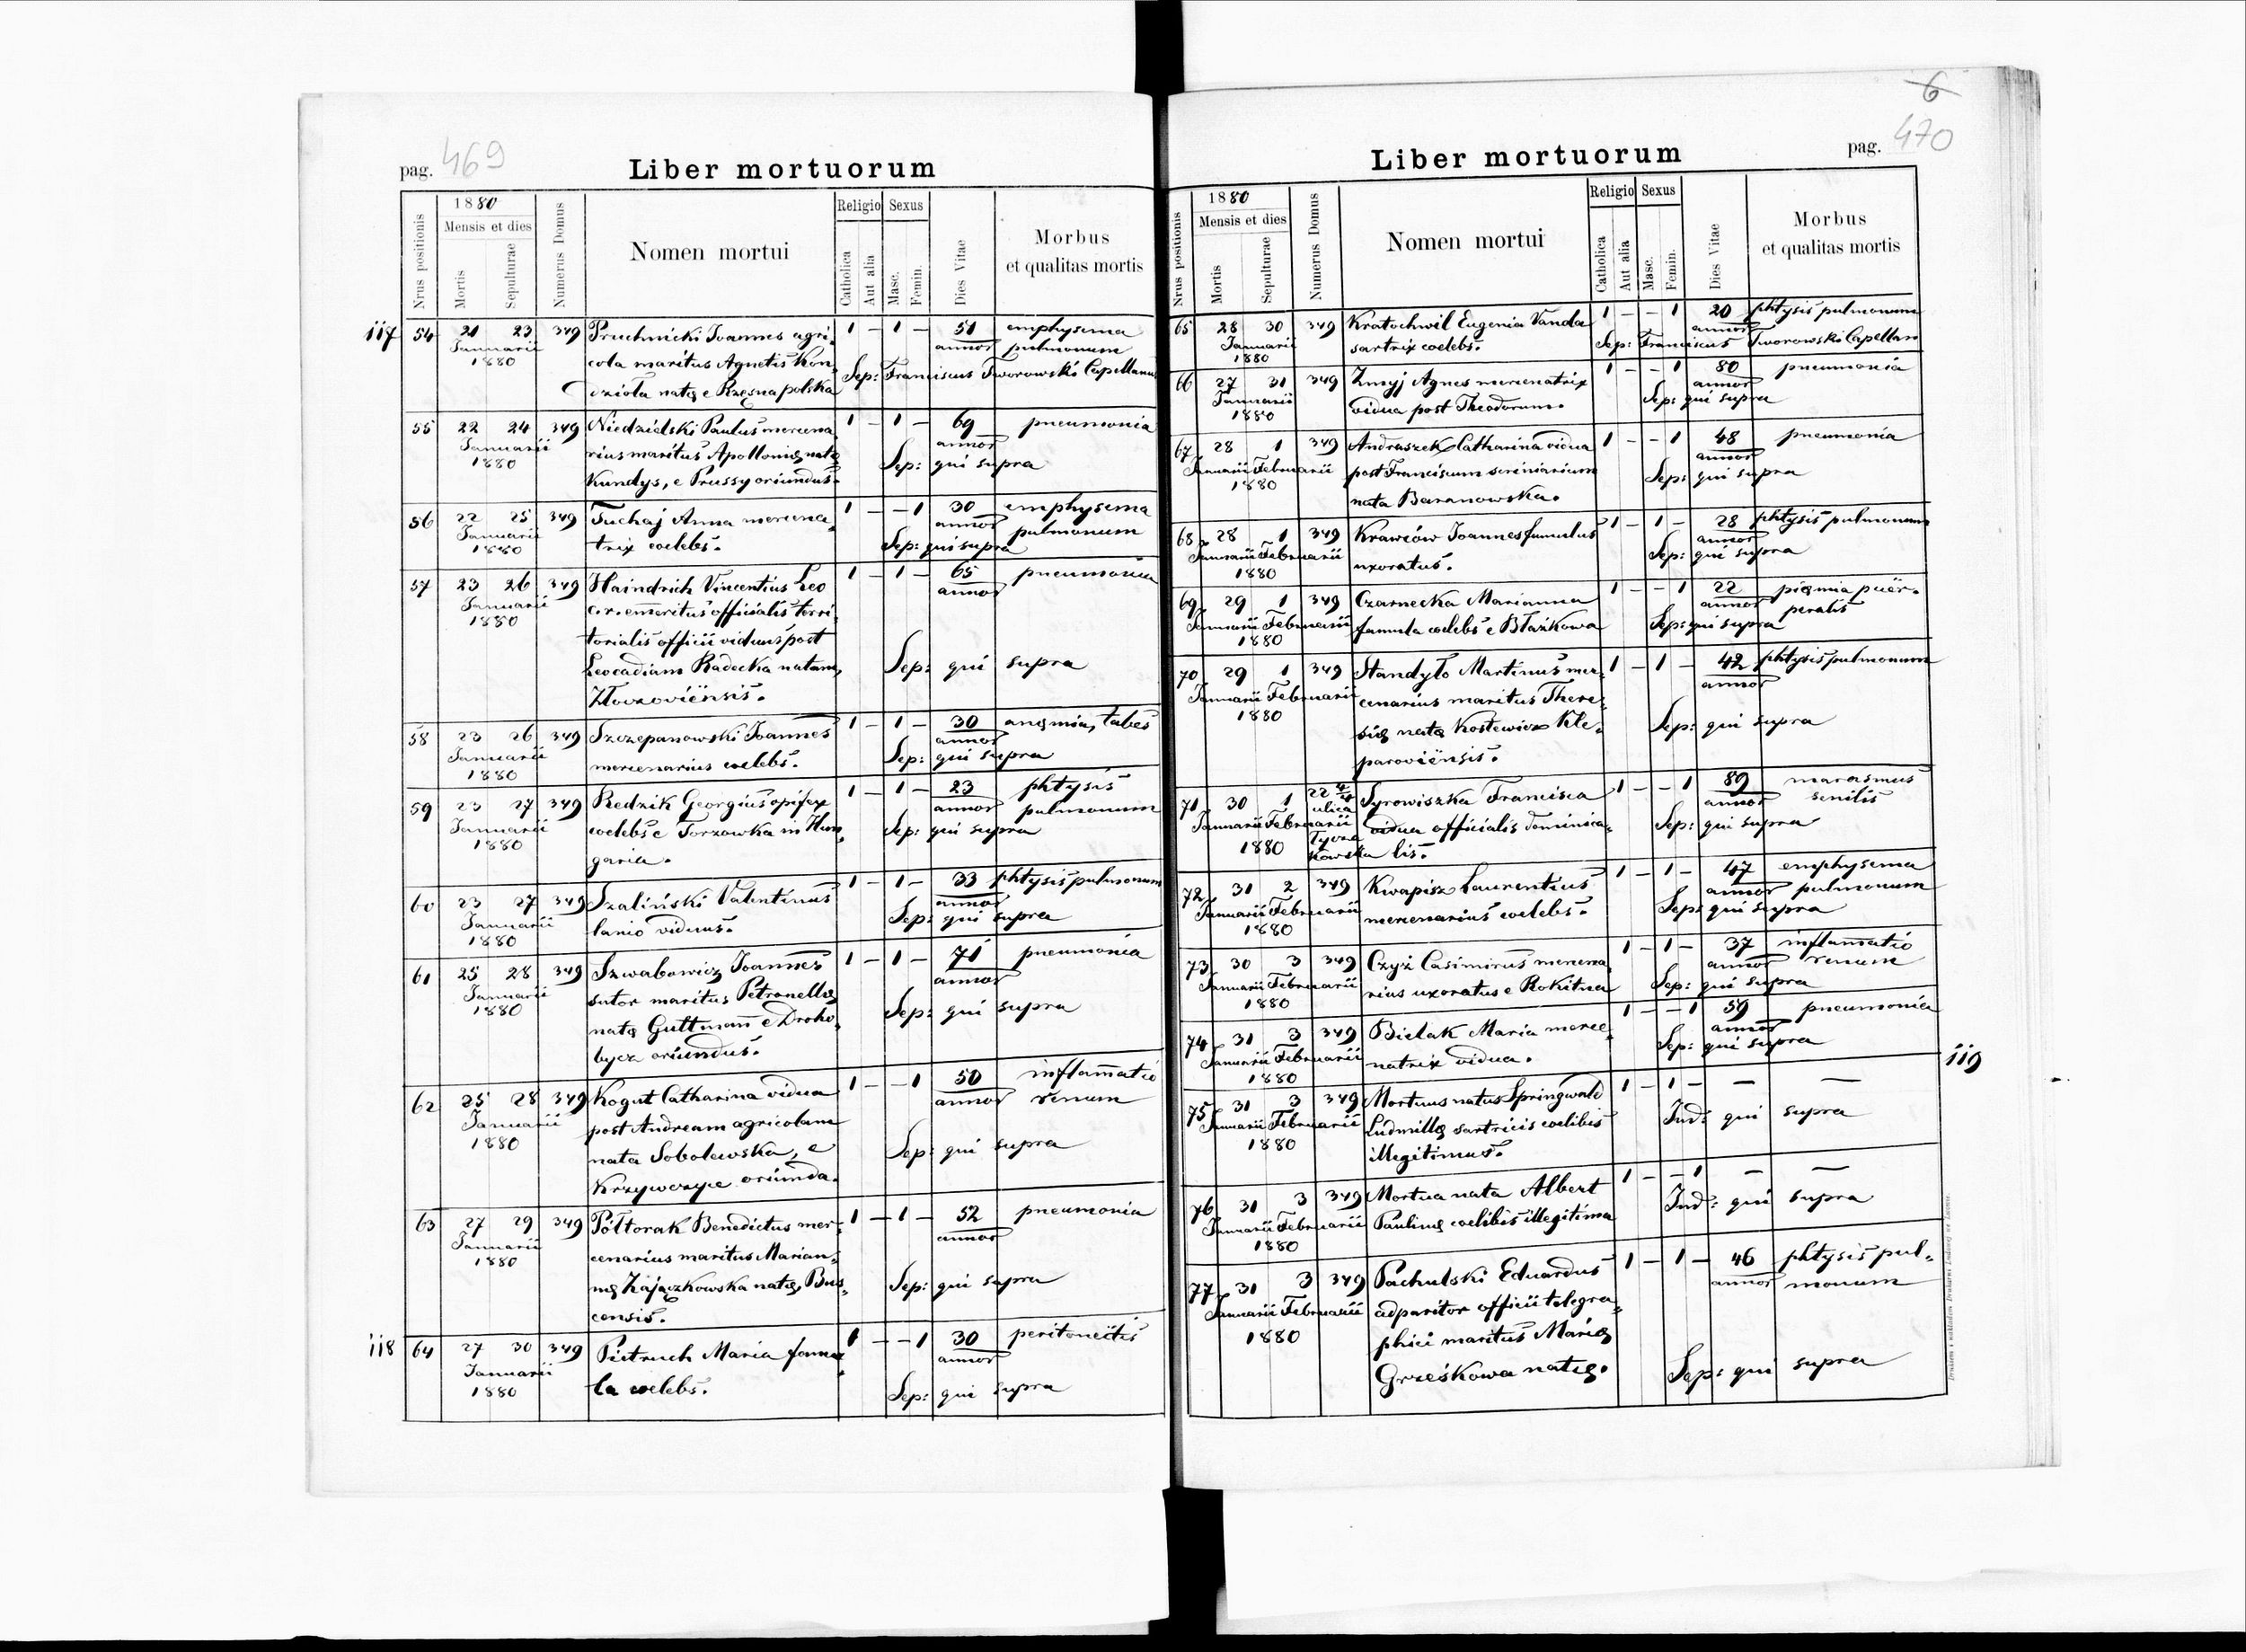 pag. 469 Liber mortuorum
Nrus positionis
1880
Mensis et dies
Mortis
Sepulturae
Numerus Domus
Nomen mortui
Religio
Catholica
Aut alia
Sexus
Masc.
Femin.
Dies Vitae
Morbus
et qualitas mortis
117 54 21 23 349 Pruchnicki Joannes agri- 1 – 1 – 51 emphysema
Januarii cola maritus Agnetis Kon- annor pulmonum
1880 dziola natę e Rzęsna polska Sep: Franciscus Tworowski Capellanus
55 22 24 349 Niedzielski Paulus mercena 1 – 1 – 69 pneumonia
Januarii rius maritus Apollonię natę annor
1880 Kundys, e Prussy oriundus. Sep: qui supra
56 22 25 349 Tuchaj Anna mercena, 1 – – 1 30 emphysema
Januarii trix coelebs. annor pulmonum
1880 Sep: qui supra
57 23 26 349 Haindrich Vincentius Leo 1 – 1 – 65 pneumonia
Januarii c. r. emeritus officialis terri annor
1880 torialis officii viduus post
Leocadiam Radecka natam, Sep: qui supra
Złoczoviensis.
58 23 26 349 Szczepanowski Joannes 1 – 1 – 30 anęmia, tabes
Januarii mercenarius coelebs. annor
1880 Sep: qui supra
59 23 27 349 Redzik Georgius opifex 1 – 1 – 23 phtysis
Januarii coelebs e Torzowka in Hun, annor pulmonum
1880 garia. Sep: qui supra
60 23 27 349 Szaliński Valentinus 1 – 1 – 33 phtysis pulmonum
Januarii lanio viduus. annor
1880 Sep: qui supra
61 25 28 349 Szwabowicz Joannes 1 – 1 – 71 pneumonia
Januarii sutor maritus Petronellę annor
1880 natę Guttmann e Droho, Sep: qui supra
bycz oriundus.
62 25 28 349 Kogut Catharina vidua 1 – – 1 50 inflamatio
Januarii post Andream agricolam annor renum
1880 nata Sobolewska, e Sep: qui supra
Krzywczyce oriunda.
63 27 29 349 Półtorak Benedictus mer- 1 – 1 – 52 pneumonia
Januarii cenarius maritus Marian, annor
1880 nę Zajączkowska natę, Bus, Sep: qui supra
censis.
118 64 27 30 349 Pietruch Maria famu, 1 – – 1 30 peritoneitis
Januarii la coelebs. annor
1880 Sep: qui supra
6
Liber mortuorum pag. 470
Nrus positionis
1880
Mensis et dies
Mortis
Sepulturae
Numerus Domus
Nomen mortui
Religio
Catholica
Aut alia
Sexus
Masc.
Femin.
Dies Vitae
Morbus
et qualitas mortis
65 28 30 349 Kratochwil Eugenia Vanda 1 – – 1 20 phtysis pulmonum
Januarii sartrix coelebs. annor
1880 Sep: Franciscus Tworowski Capellan
66 27 31 349 Zmyj Agnes mercenatrix 1 – – 1 80 pneumonia
Januarii vidua post Theodorum. annor
1880 Sep: qui supra
67 28 1 349 Andraszek Catharina vidua 1 – – 1 48 pneumonia
Januarii Februarii post Franciscum scriniarium annor
1880 nata Baranowska. Sep: qui supra
68 28 1 349 Krawców Joannes famulus 1 – 1 – 28 phtysis pulmonum
Januarii Februarii uxoratus. annor
1880 Sep: qui supra
69 29 1 349 Czarnecka Marianna 1 – – 1 22 pięmia puër-
Januarii Februarii famula coelebs e Błażkowa annor peralis
1880 Sep: qui supra
70 29 1 349 Standyło Martinus mer- 1 – 1 – 42 phtysis pulmonum
Januarii Februarii cenarius maritus There, annor
1880 się natę Kostewicz Kle, Sep: qui supra
paroviensis.
71 30 1 22 4/4 Syrowiszka Francisca 1 – – 1 89 marasmus
Januarii Februarii ulica vidua officialis dominica, annor senilis
1880 Łyczakowska lis. Sep: qui supra
72 31 2 349 Kwapisz Laurentius 1 – 1 – 47 emphysema
Januarii Februarii mercenarius coelebs. annor pulmonum
1880 Sep: qui supra
73 30 3 349 Czyż Casimirus mercena 1 – 1 – 37 inflamatio
Januarii Februarii rius uxoratus e Rokitna annor renum
1880 Sep: qui supra
74 31 3 349 Bielak Maria merce, 1 – – 1 59 pneumonia
Januarii Februarii natrix vidua. annor
1880 Sep: qui supra
119
75 31 3 349 Mortuus natus Springwald 1 – 1 – – –
Januarii Februarii Ludmillę sartricis coelibis Ind: qui supra
1880 illegitimus.
76 31 3 349 Mortua nata Albert 1 – – 1 – –
Januarii Februarii Paulinę coelibis illegitima Ind: qui supra
1880
77 31 3 349 Pachulski Eduardus 1 – 1 – 46 phtysis pul-
Januarii Februarii adparitor officii telegra, annor monum
1880 phici maritus Marię
Grześkowa natę. Sep: qui supra